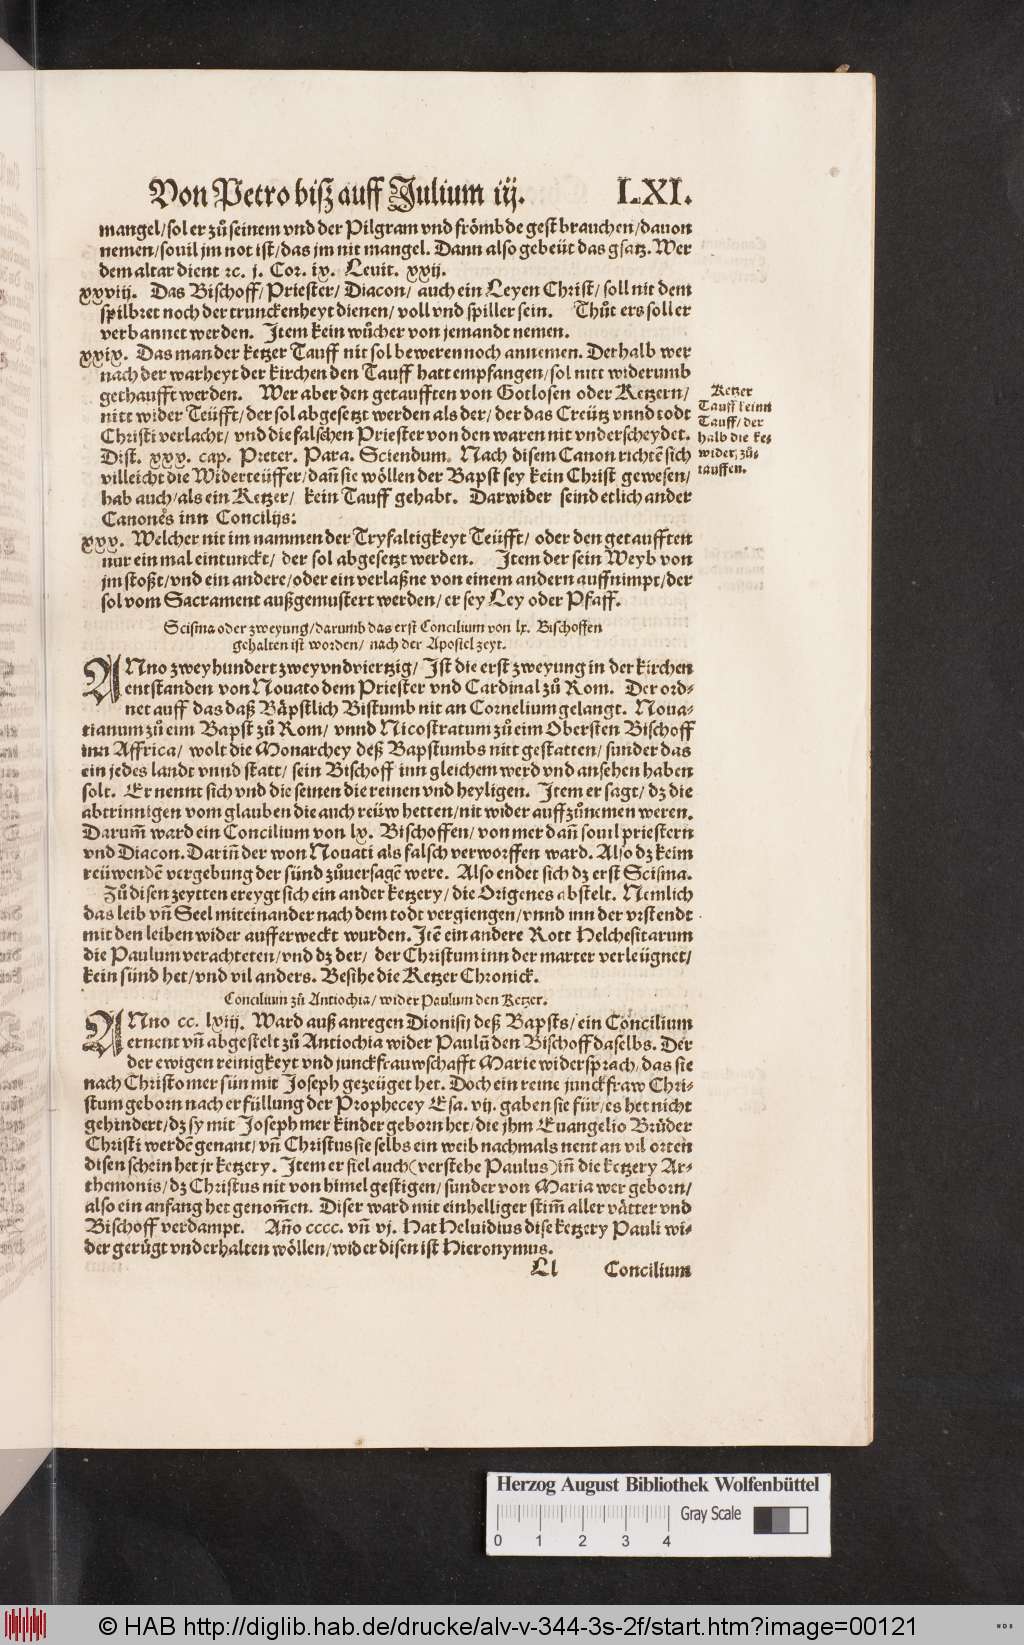 Von Petro biſz auff Julium iij. LXI.
mangel/ sol er zů seinem vnd der Pilgram vnd frömbde gest brauchen/ dauon
nemen/ souil jm not ist/ das jm nit mangel. Dann also gebeüt das gsatz. Wer
dem altar dient ꝛc. j. Cor. ix. Leuit. xxij.
xxviij. Das Bischoff/ Priester/ Diacon/ auch ein Leyen Christ/ soll nit dem
spilbret noch der trunckenheyt dienen/ voll vnd spiller sein. Thůt ers soll er
verbannet werden. Item kein wůcher von jemandt nemen.
xxix. Das man der ketzer Tauff nit sol beweren noch annemen. Derhalb wer
nach der warheyt der kirchen den Tauff hatt empfangen/ sol nitt widerumb
gethaufft werden. Wer aber den getaufften von Gotlosen oder Ketzern/
nitt wider Teüfft/ der sol abgesetzt werden als der/ der das Creütz vnnd todt
Christi verlacht/ vnd die falschen Priester von den waren nit vnderscheydet.
Dist. xxx. cap. Preter. Para. Sciendum. Nach disem Canon richtē sich
villeicht die Widerteüffer/ dañ sie wöllen der Bapst sey kein Christ gewesen/
hab auch/ als ein Ketzer/ kein Tauff gehabt. Darwider seind etlich ander
Canones inn Concilijs:
Ketzer
Tauff keinn
Tauff/ der
halb die ke⸗
wider, zů⸗
tauffen.
xxx. Welcher nit im nammen der Tryfaltigkeyt Teüfft/ oder den getaufften
nur ein mal eintunckt/ der sol abgesetzt werden. Item der sein Weyb von
jm stoßt/ vnd ein andere/ oder ein verlaßne von einem andern auffnimpt/ der
sol vom Sacrament außgemustert werden/ er sey Ley oder Pfaff.
Scisma oder zweyung/ darumb das erst Concilium von lx. Bischoffen
gehalten ist worden/ nach der Apostel zeyt.
ANno zweyhundert zwey vnd viertzig/ Ist die erst zweyung in der kirchen
entstanden von Nouato dem Priester vnd Cardinal zů Rom. Der ord⸗
net auff das daß Bäpstlich Bistumb nit an Cornelium gelangt. Noua⸗
tianum zů eim Bapst zů Rom/ vnnd Nicostratum zů eim Obersten Bischoff
inn Affrica/ wolt die Monarchey deß Bapstumbs nitt gestatten/ sunder das
ein jedes landt vnnd statt/ sein Bischoff inn gleichem werd vnd ansehen haben
solt. Er nennt sich vnd die seinen die reinen vnd heyligen. Item er sagt/ dz die
abtrinnigen vom glauben die auch reüw hetten/ nit wider auff zůnemen weren.
Darum̃ ward ein Concilium von lx. Bischoffen/ von mer dañ souil priestern
vnd Diacon. Dariñ der won Nouati als falsch verworffen ward. Also dz keim
reüwendē vergebung der sünd zůuersagē were. Also endet sich dz erst Scisma.
Zů disen zeytten ereygt sich ein ander ketzery/ die Origenes abstelt. Nemlich
das leib vñ Seel miteinander nach dem todt vergiengen/ vnnd inn der vrstendt
mit den leiben wider aufferweckt wurden. Itē ein andere Rott Helchesitarum
die Paulum verachteten/ vnd dz der/ der Christum inn der marter verleügnet/
kein sünd het/ vnd vil anders. Besihe die Ketzer Chronick.
Concilium zů Antiochia/ wider Paulum den Ketzer.
ANno cc. lxiij. Ward auß anregen Dionisij deß Bapsts/ ein Concilium
ernent vñ abgestelt zů Antiochia wider Paulū den Bischoff daselbs. Der
der ewigen reinigkeyt vnd junckfrauwschafft Marie widersprach/ das sie
nach Christo mer sün mit Joseph gezeüget het. Doch ein reine junckfraw Chri⸗
stum geborn nach erfüllung der Prophecey Esa. vij. gaben sie für/ es het nicht
gehindert/ dz sy mit Joseph mer kinder geborn het/ die jhm Euangelio Brůder
Christi werdē genant/ vñ Christus sie selbs ein weib nachmals nent an vil orten
disen schein het jr ketzery. Item er fiel auch (verstehe Paulus) iñ die ketzery Ar⸗
themonis/ dz Christus nit von himel gestigen/ sunder von Maria wer geborn/
also ein anfang het genom̃en. Diser ward mit einhelliger stim̃ aller vätter vnd
Bischoff verdampt. Año cccc. vñ vj. Hat Heluidius dise ketzery Pauli wi⸗
der gerügt vnd erhalten wöllen/ wider disen ist Hieronymus.
Ll Concilium
Herzog August Bibliothek Wolfenbüttel
Gray Scale
0 1 2 3 4
© HAB http://diglib.hab.de/drucke/alv-v-344-3s-2f/start.htm?image=00121